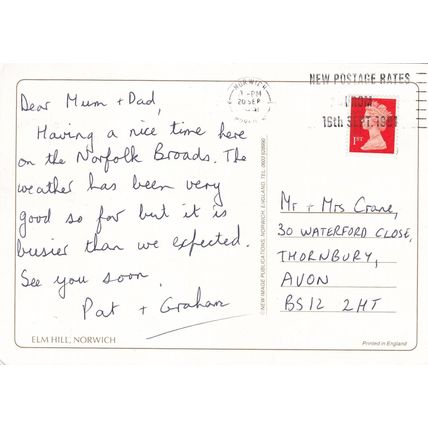 Dear Mum + Dad,
Having a nice time here
on the Norfolk Broads. The
weather has been very
good so far but it is
busier than we expected.
See you soon.
Pat + Graham
ELM HILL, NORWICH
©NEW IMAGE PUBLICATIONS, NORWICH, ENGLAND. TEL.
NORWICH
-PM
20 SEP
NEW POSTAGE RATES
FROM
16th SEPT. 1991
1ST
Mr + Mrs Crane,
30 WATERFORD CLOSE,
THORNBURY,
AVON
BS12 2HT
Printed in England